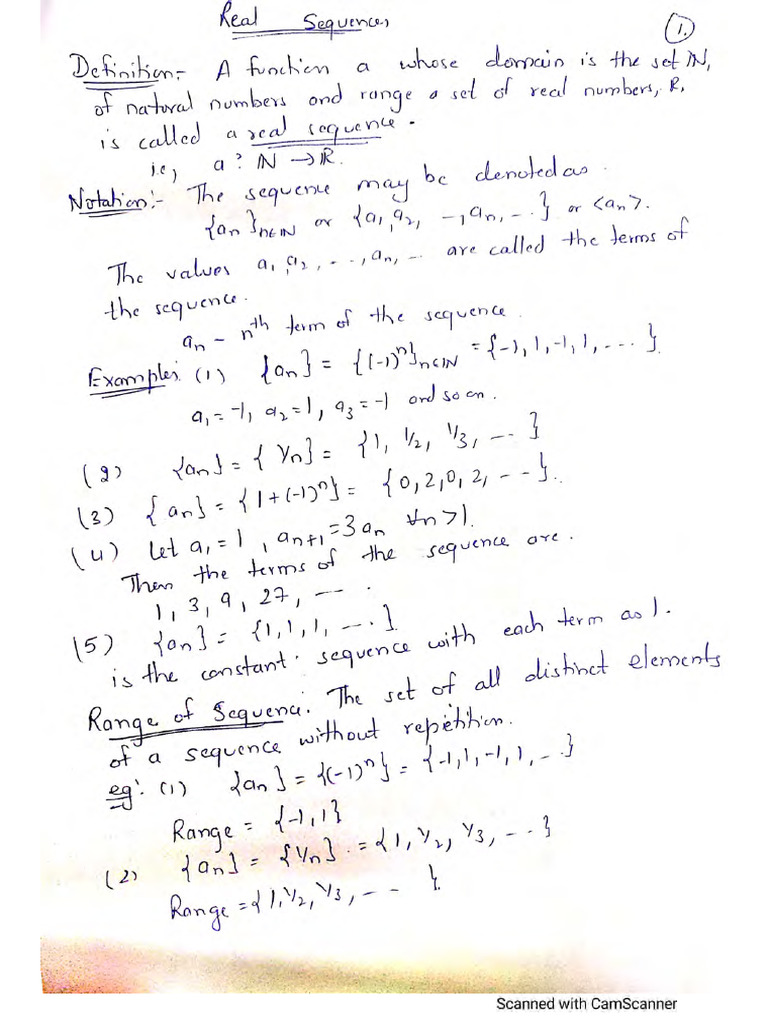 Real Sequences
1.
Definition:- A function a whose domain is the set ℕ,
of natural numbers and range a set of real numbers, R,
is called a real sequence.
i.e, a: ℕ → ℝ.
Notation:- The sequence may be denoted as
{an}n∈ℕ or {a1, a2, -, an, -..} or <an>.
The values a1, a2, ..., an, ... are called the terms of
the sequence.
an - nth term of the sequence.
Examples: (1) {an} = {(-1)^n}n∈ℕ = {-1, 1, -1, 1, ....}
a1 = -1, a2 = 1, a3 = -1 and so on.
(2) {an} = {1/n} = {1, 1/2, 1/3, ...}
(3) {an} = {1+(-1)^n} = {0, 2, 0, 2, ...}.
(4) Let a1 = 1, an+1 = 3an ∀n>1.
Then the terms of the sequence are.
1, 3, 9, 27, ....
(5) {an} = {1, 1, 1, ....}
is the constant sequence with each term as 1.
Range of Sequenc: The set of all distinct elements
of a sequence without repetition.
eg: (1) {an} = {(-1)^n} = {-1, 1, -1, 1, ...}
Range = {-1, 1}
(2) {an} = {1/n} = {1, 1/2, 1/3, ...}
Range = {1, 1/2, 1/3, ... }.
Scanned with CamScanner